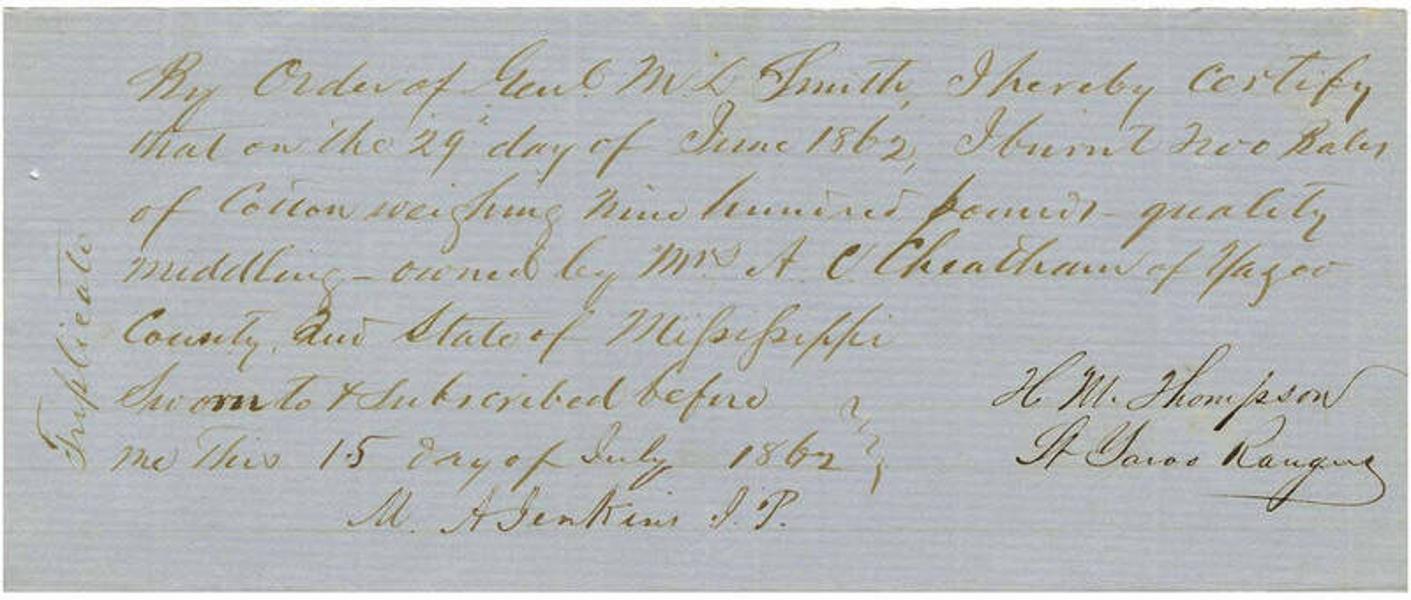 By Order of Genl. M L Smith, I hereby certify
that on the 29 day of June 1862, I burnt two Bales
of Cotton weighing nine hundred pounds - quality
middling - owned by Mrs A C Cheatham of Yazoo
County, and State of Mississippi
Sworn to & subscribed before
me This 15 day of July 1862
M. A Jenkins J. P.
H. M. Thompson
Lt Yazoo Rangers
Triplicate